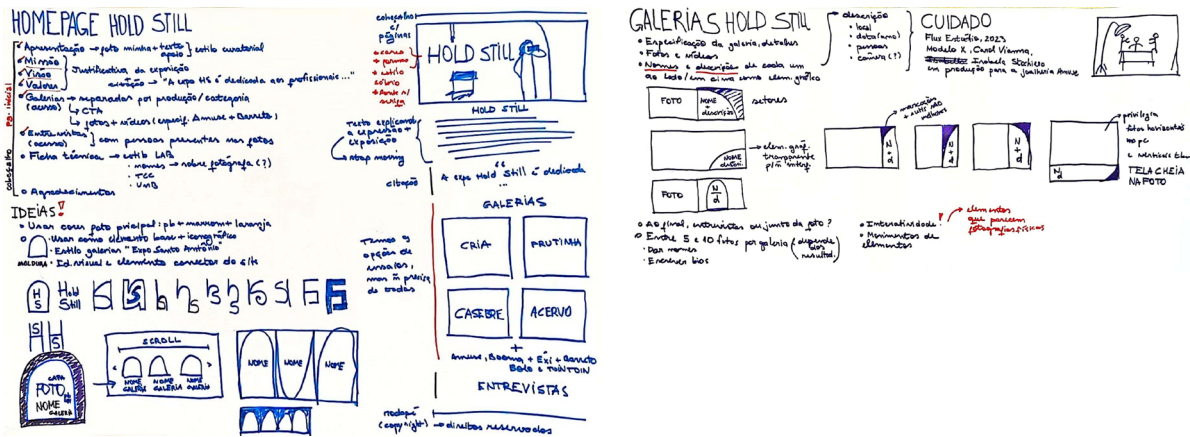 HOMEPAGE HOLD STILL
Apresentação → foto minha + texto apoio } estilo curatorial
Missão
Visão
Valores
Justificativa da exposição
citação → "A expo HS é dedicada aos profissionais..."
Galerias → separador por produção/categoria
(acesso) → CTA
→ fotos + vídeos (especif. Amuse + Barreto)
Entrevistas (acesso) } com pessoas presentes nas fotos
Ficha técnica → estilo LAB
· nomes → sobre fotógrafa (?)
· TCC
· UMB
Agradecimentos
cabeçalho
pg. inicial
IDEIAS!
Usar cores pato principal: pb + marrom laranja
· Usar como elemento base + iconográfico
· Estilo galeria "Expo Santo Antônio"
MOLDURA · Id. visual e elemento conector do site
H S
Hold Still
H H
S S
CAPA
FOTO
NOME
GALERIA
SCROLL
NOME GALERIA
NOME GALERIA
NOME GALERIA
NOME
NOME
NOME
cabeçalho c/ páginas
HOLD STILL
HOLD STILL
Texto explicando a expressão + exposição
→ stop moving
citação
"A expo Hold Still é dedicada
..."
GALERIAS
Temos 9 opções de ensaios, mas ñ precisa de todas
CRIA
FRUTINHA
CASEBRE
ACERVO
+
Amuse, Boema, + Exi + Barreto
Bolo e TOINTOIN
ENTREVISTAS
rodapé (copyright) → direitos reservados
GALERIAS HOLD STILL
Especificação da galeria, detalhes
Fotos e vídeos
Nomes e descrição de cada um
ao lado/em cima como elem gráfico
descrição
· local
· data (ano)
· pessoas
· câmera (?)
CUIDADO
Flux Estúdio, 2023
Modelo X, Carol Vianna,
Isabela Stachiero
em produção para a joalheria Amuse
FOTO
NOME
descrição
setores
NOME
→ elem. gráf. transparente p/ ñ interf.
FOTO
N
d
→ marcação + sutis são melhores
N + d
N + d
N + d
N
d
privilegia fotos horizontais no pc
TELA CHEIA NA FOTO
Ao final, entrevistas ou junto da foto?
Entre 5 e 10 fotos por galeria (depende dos resultad.)
· Dar nomes
· Escrever bios
Interatividade!
Movimentos de elementos
→ elementos que parecem fotografias físicas